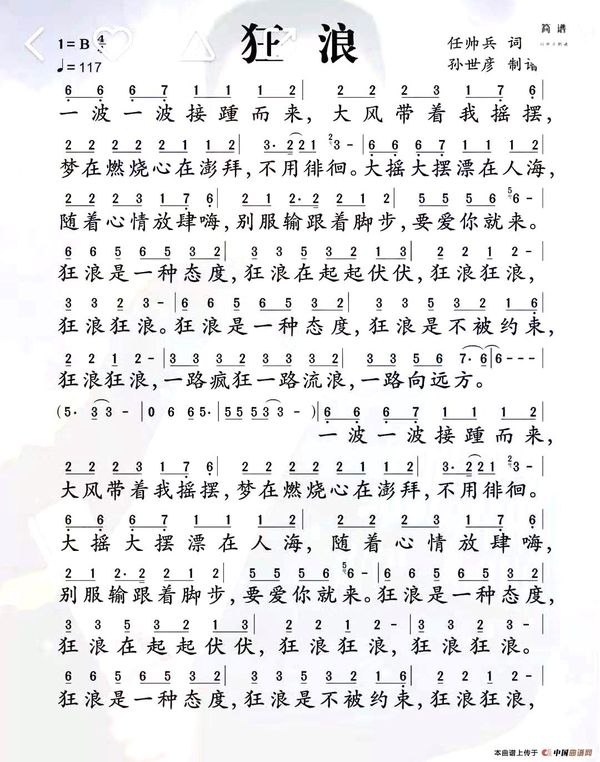 狂浪
简谱
1=B 4/4
♩=117
任帅兵 词
孙世彦 制谱
6 6 6 7 | 1 1 1 2 | 2 2 2 3 1 7 6 |
一波一波接踵而来，大风带着我摇摆，
2 2 2 2 2 1 1 2 | 3· 2 2 1 2 3 - | 6 6 6 7 1 1 1 2 |
梦在燃烧心在澎拜，不用徘徊。大摇大摆漂在人海，
2 2 2 3 1 7 6 | 2 1 2· 2 2 1 2 | 5 5 5 5 6 5 6 - |
随着心情放肆嗨，别服输跟着脚步，要爱你就来。
6 6 5 6 5 3 2 | 3 3 5 3 2 1 3 | 2 2 1 2 - |
狂浪是一种态度，狂浪在起起伏伏，狂浪狂浪，
3 3 2 3 - | 6 6 5 6 5 3 2 | 3 3 5 3 2 1 6 |
狂浪狂浪。狂浪是一种态度，狂浪是不被约束，
2 2 1 2 - | 3 3 3 2 3 3 3 2 | 3 3 5 6 7· 6 | 6 - - - |
狂浪狂浪，一路疯狂一路流浪，一路向远方。
(5· 3 3 - | 0 6 6 5· | 5 5 5 5 3 3 - ) | 6 6 6 7 1 1 1 2 |
一波一波接踵而来，
2 2 2 3 1 7 6 | 2 2 2 2 2 1 1 2 | 3· 2 2 1 2 3 - |
大风带着我摇摆，梦在燃烧心在澎拜，不用徘徊。
6 6 6 7 1 1 1 2 | 2 2 2 3 1 7 6 |
大摇大摆漂在人海，随着心情放肆嗨，
2 1 2· 2 2 1 2 | 5 5 5 5 6 5 6 - | 6 6 5 6 5 3 2 |
别服输跟着脚步，要爱你就来。狂浪是一种态度，
3 3 5 3 2 1 3 | 2 2 1 2 - | 3 3 2 3 - |
狂浪在起起伏伏，狂浪狂浪，狂浪狂浪。
6 6 5 6 5 3 2 | 3 3 5 3 2 1 6 | 2 2 1 2 - |
狂浪是一种态度，狂浪是不被约束，狂浪狂浪，
本曲谱上传于 中国曲谱网